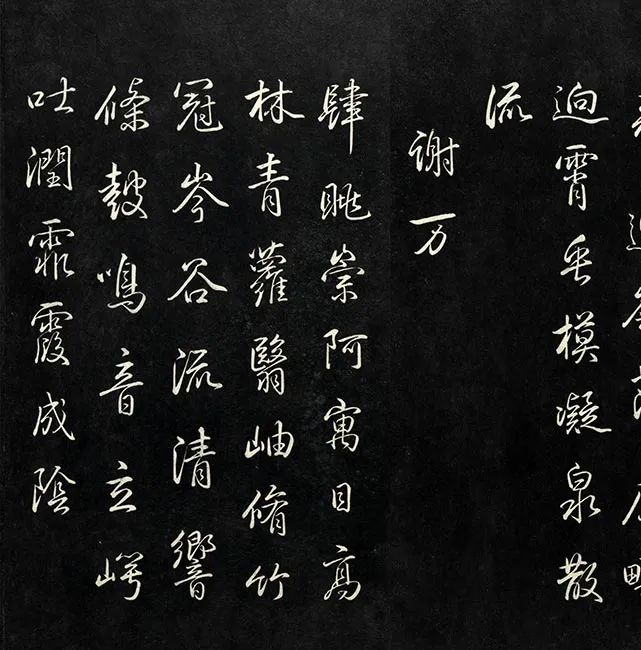 逈霄垂模凝泉散
流
謝万
肆眺崇阿寓目高
林青蘿翳岫脩竹
冠岑谷流清響
條鼓鳴音立崿
吐潤霏霞成陰